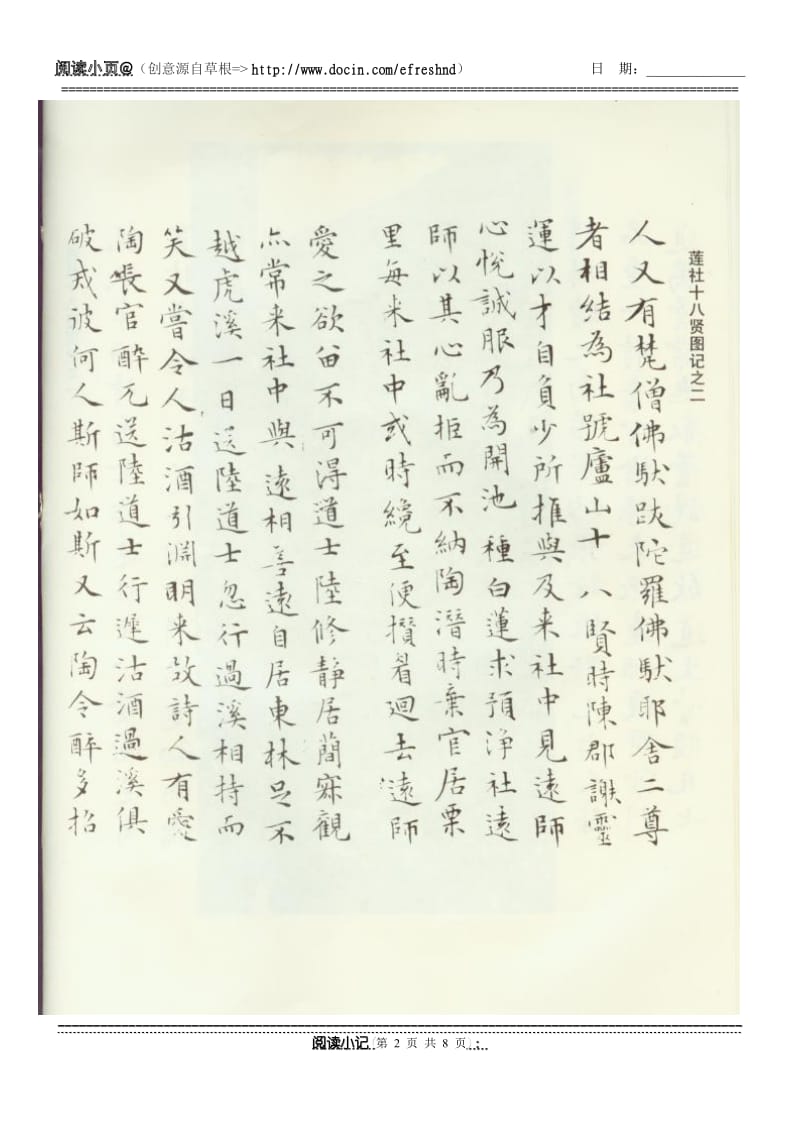 阅读小页@（创意源自草根=> http://www.docin.com/efreshnd）
日 期:
莲社十八贤图记之二
人又有梵僧佛馱跋陀羅佛馱耶舍二尊
者相结為社號廬山十八賢時陳郡謝靈
運以才自負少所推與及来社中見遠師
心悅誠服乃為開池種白蓮求預淨社遠
師以其心亂拒而不納陶潛時棄官居栗
里每来社中或時纔至便攢眉迴去遠師
愛之欲留不可得道士陸修静居簡寂觀
亦常来社中與遠相善遠自居東林足不
越虎溪一日送陸道士忽行過溪相持而
笑又嘗令人沽酒引淵明来故詩人有愛
陶長官醉兀送陸道士行遲沽酒過溪俱
破戒彼何人斯師如斯又云陶令醉多招
阅读小记 (第 2 页 共 8 页) ;